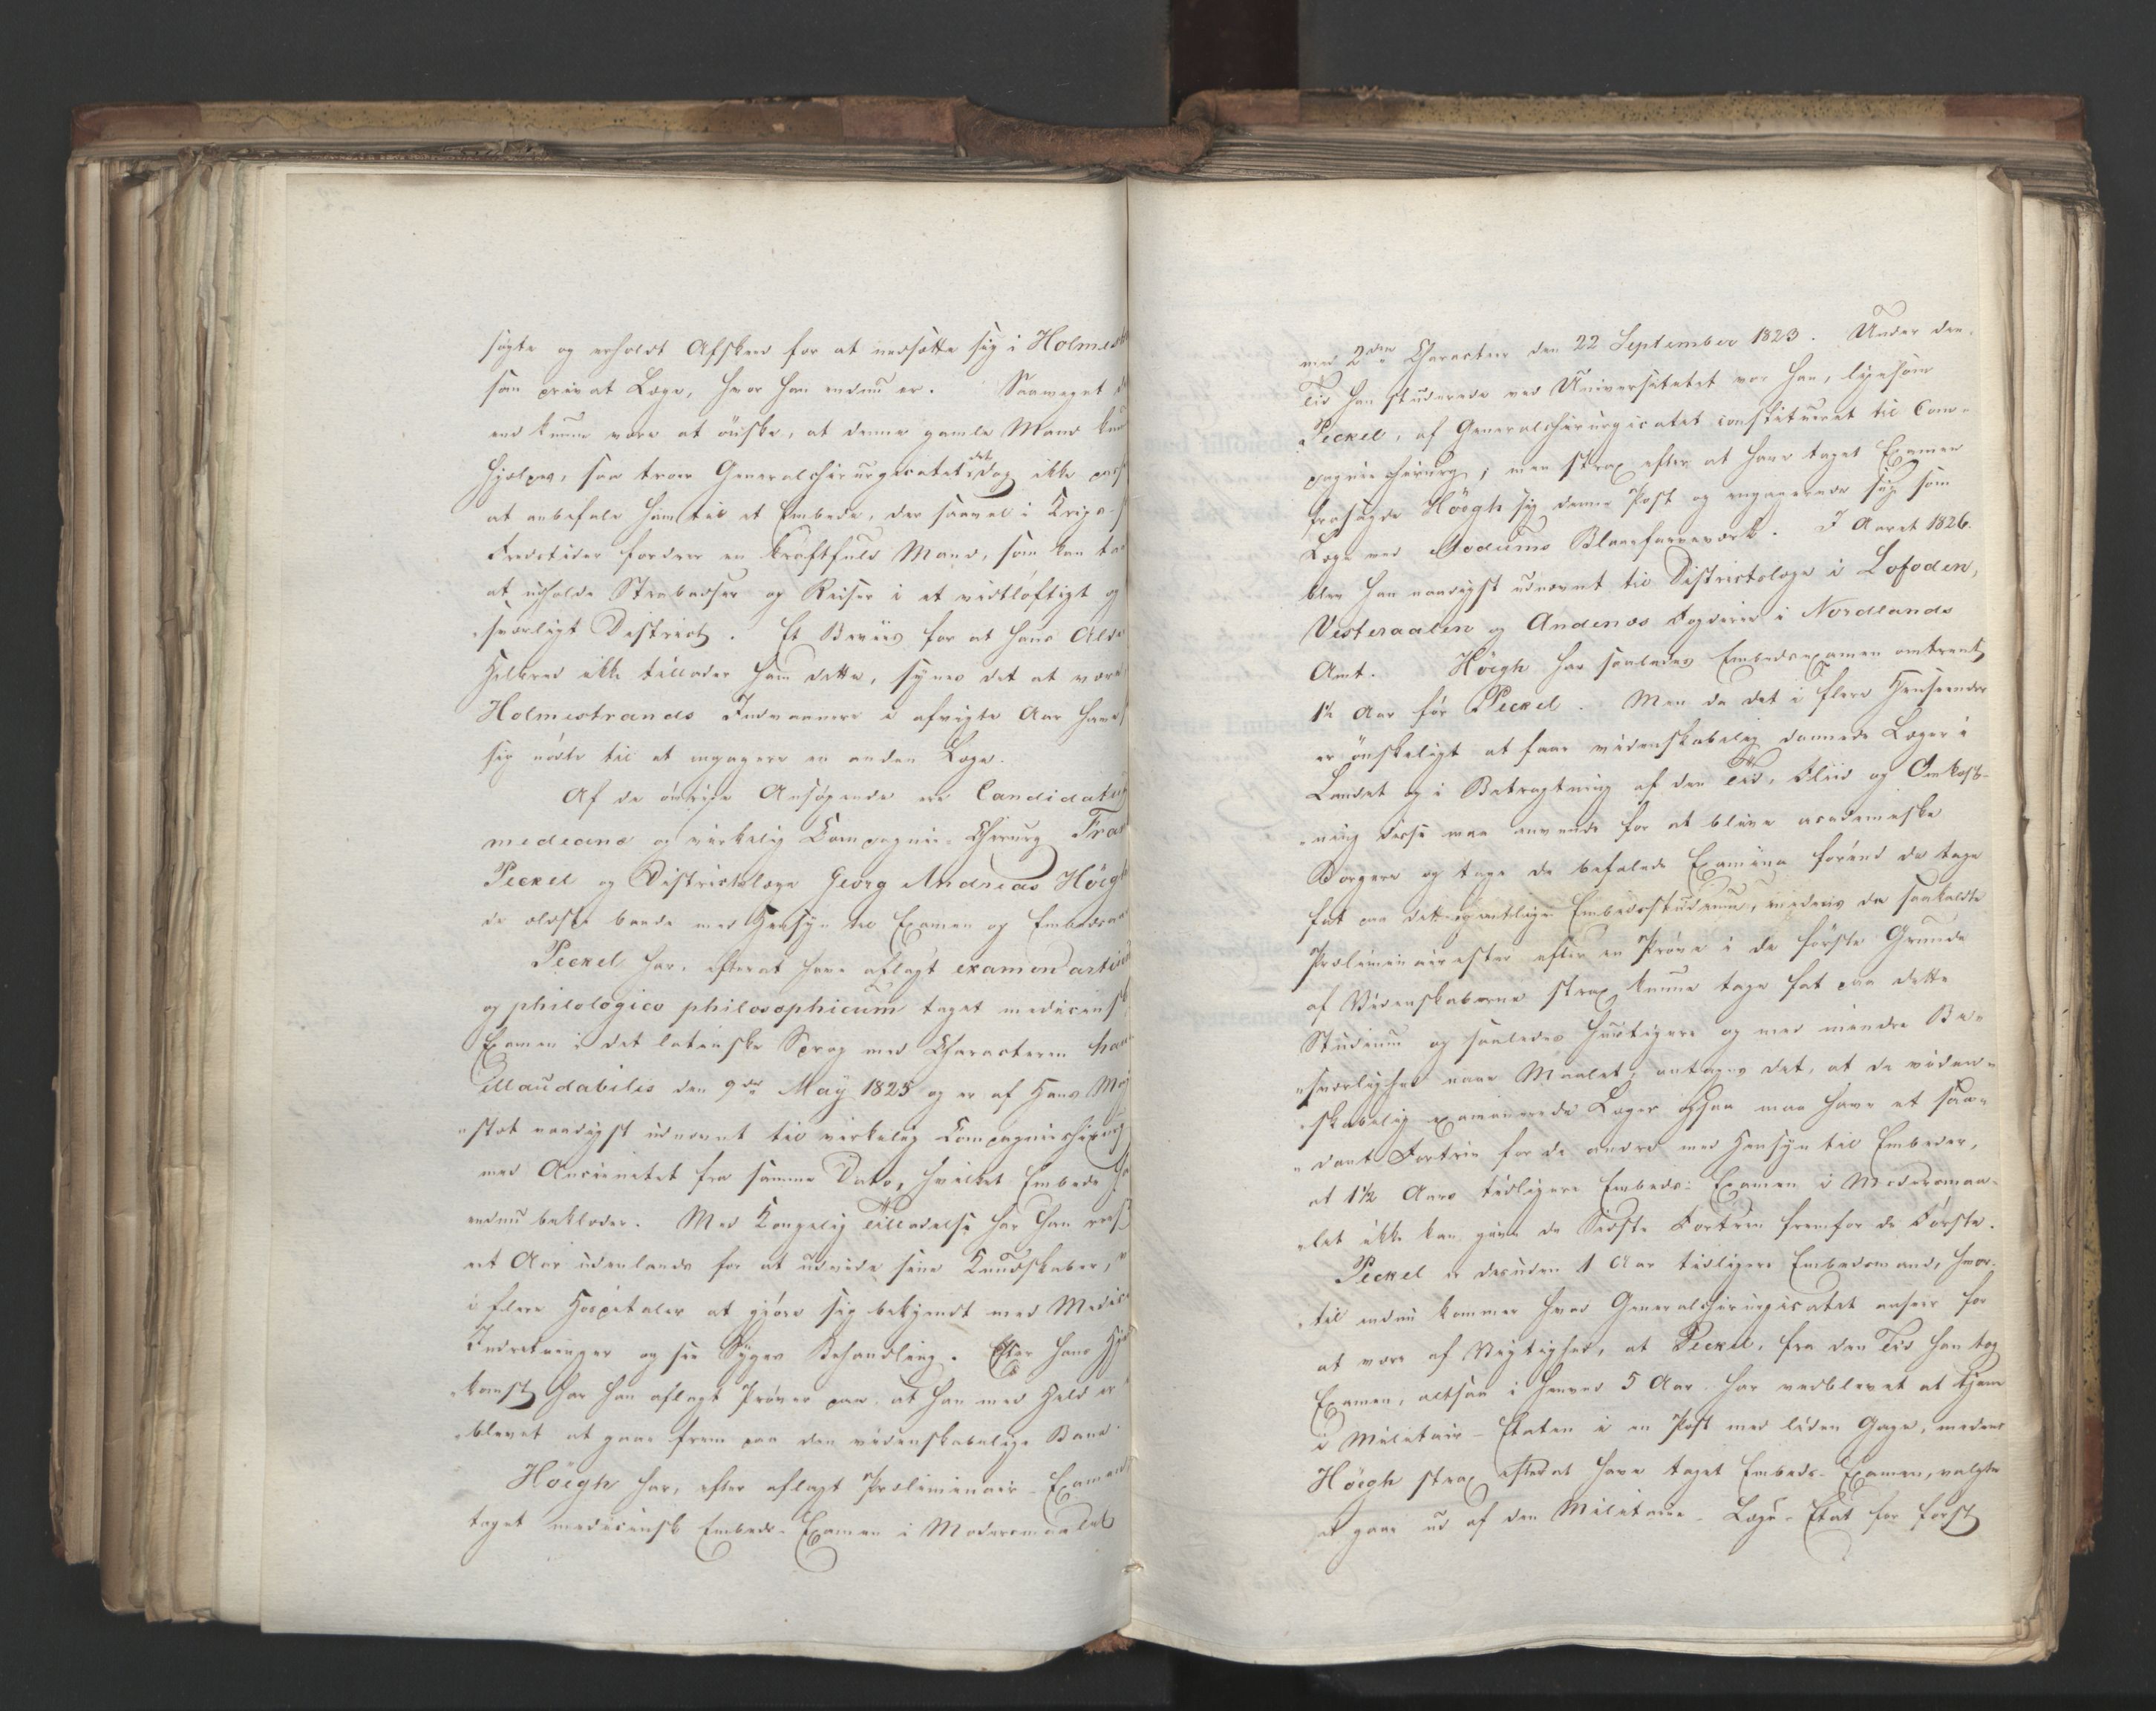 søgte og erholdt Afskeed for at nedsætte sig i Holmest
som privat Læge, hvor han endnu er. Saameget d
end kunne være at önske, at denne gamle Mand kun
hjælpes, saa troer Generalchirurgicatet det dog ikke
at anbefale ham til et Embede, der saavel i Krigs-
Fredstider fordrer en kraftfuld Mand, som kan
at udholde Strabadser og Reiser i et vidtløftigt og
"sværligt District. Et Beviis for at hans Alde
Helbred ikke tillader ham dette, synes det at være
Holmestrands Indvaanere i afvigte Aar have
sig nødte til at engagere en anden Læge.
Af de øvrige Ansøgende ere Candidatus
medicinæ og virkelig Compagnie-Chirurg Fra
Peckel og Districtslæge Georg Andreas Höegh
de ældste baade med Hensyn til Examen og Embeds
Peckel har, efterat have aflagt examen artiu
og philologico philosophicum taget medicinsk
Examen i det latinske Sprog med Characteren hau
illaudabilis den 9de May 1825 og er af Hans Maj
"stæt naadigst udnævnt til virkelig Compagniechirurg
med Ancienitet fra samme Dato, hvilket Embede
endnu beklæder. Med Kongelig Tilladelse har han
et Aar udenlands for at udvide sine Kundskaber,
i flere Hospitaler at gjøre sig bekjendt med Medic
Indretninger og see Syges Behandling. Efter hans Hje
"komst har han aflagt Prøver paa, at han med Held er
"blevet at gaae frem paa den videnskabelige Bane.
Höegh har, efter aflagt Præliminair-Examen
taget medicinsk Embeds-Examen i Modersmaalet
med 2den Characteer den 22 September 1823. Under den
Tid han studerede ved Universitetet var han, ligesom
Peckel, af Generalchirurgicatet constitueret til Com-
pagniechirurg, men strax efter at have taget Examen
frasagde Höegh sig denne Post og engagerede sig som
Læge ved Modums Blaafarveværk. I Aaret 1826.
blev han naadigst udnævnt til Districtslæge i Lofoden,
Vesteraalen og Andenæs Fogderie i Nordlands
Amt. Höegh har saaledes Embedsexamen omtrent
1½ Aar før Peckel. Men da det i flere Henseender
er ønskeligt at faae videnskabelig dannede Læger i
Landet og i Betragtning af den Tid, Fliid og Omkost-
"ning disse maa anvende for at blive academiske
Borgere og tage de befalede Examina førend de tage
fat paa det egentlige Embedsstudium, medens de saakaldte
Præliminairister efter en Prøve i de første Grunde
af Videnskaberne strax kunne tage fat paa dette
Studium og saaledes hurtigere og med mindre Be-
"sværlighed naae Maalet, antages det, at de viden-
"skabelig examinerede Læger ogsaa maa have et saa-
"dant Fortrin for de andre med Hensyn til Embeder,
at 1½ Aars tidligere Embeds-Examen i Modersmaa-
"let ikke kan give de Sidste Fortrin fremfor de Første.
Peckel er desuden 1 Aar tidligere Embedsmand, hvor-
"til endnu kommer hvad Generalchirurgicatet anseer for
at være af Vigtighed, at Peckel, fra den Tid han tog
Examen, altsaa i henved 5 Aar har vedblevet at tjene
i Militair-Etaten i en Post med liden Gage, medens
Höegh strax efterat have taget Embeds-Examen, valgte
at gaae ud af den Militaire-Læge-Etat for først